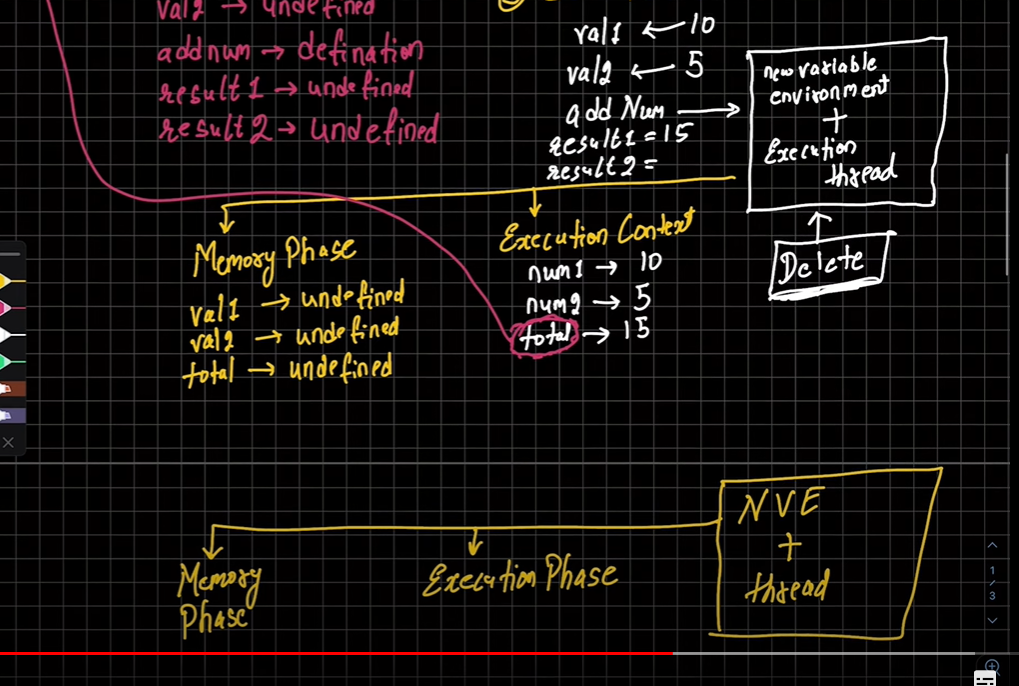 val2 → undefined
addnum → defination
result1 → undefined
result2 → undefined
val1 ← 10
val2 ← 5
addNum →
result1 = 15
result2 =
new variable
environment
+
Execution
thread
Delete
Memory Phase
val1 → undefined
val2 → undefined
total → undefined
Execution Context
num1 → 10
num2 → 5
total → 15
Memory
Phase
Execution Phase
NVE
+
thread
1
/
3